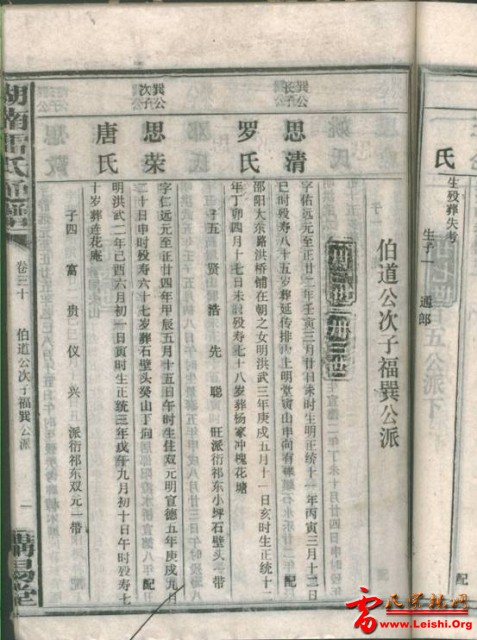 氏
生殁葬失考
生子一 通郎
配
伯道公次子福巽公派
巽公长子
思清
字佑远元至正廿二年壬寅三月廿日未时生明正统十一年丙寅三月十二日
巳时殁寿八十五岁葬延传排上明堂寅山申向有碑
配
罗氏
邵阳大东路洪桥铺在朝之女明洪武三年庚戌五月十一日亥时生正统十二
年丁卯四月十七日未时殁寿七十八岁葬杨家冲槐花塘
子五 贤 浩 先 聪 旺 派衍祁东小坪石壁头一带
巽公次子
思荣
字仁远元至正廿四年甲辰五月十五日午时生住双元明宣德五年庚戌九月
二十日申时殁寿六十七岁葬石壁头癸山丁向
配
唐氏
明洪武二年己酉六月初一日寅时生正统三年戊午九月初十日午时殁寿七
十岁葬莲花庵
子四 富 贵 仪 兴 派衍祁东双元一带
湖南雷氏通谱
卷三十
伯道公次子福巽公派
一
雷氏宗族网
www.Leishi.Org